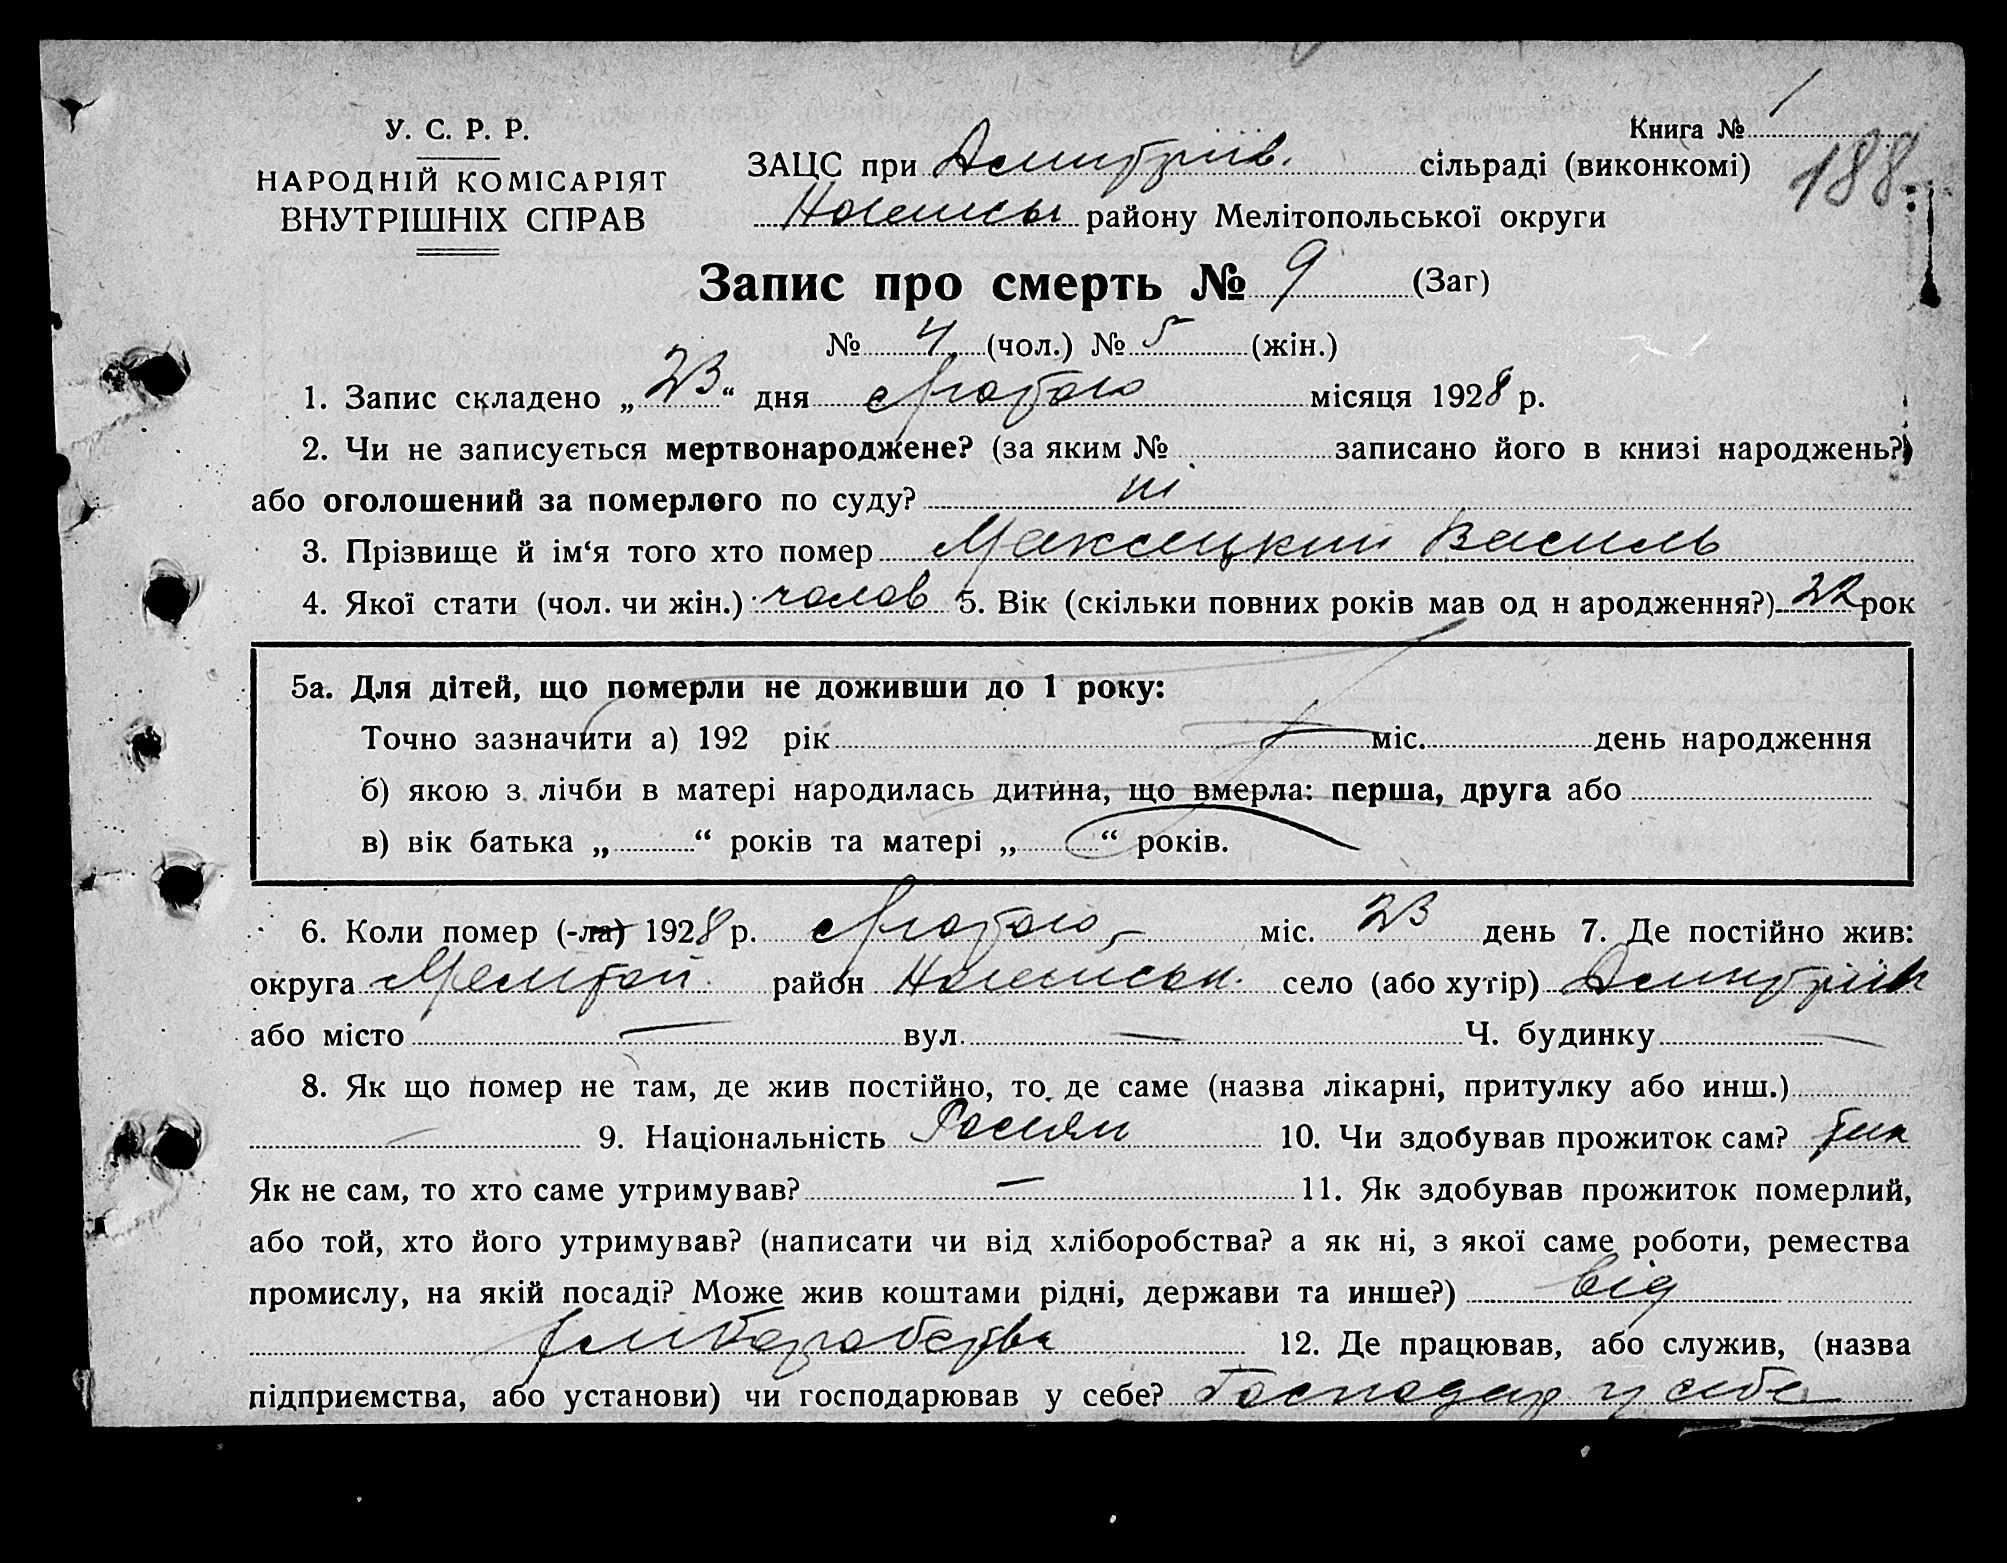 Книга № 1
188
У. С. Р. Р.
НАРОДНІЙ КОМІСАРІЯТ
ВНУТРІШНІХ СПРАВ
ЗАЦС при Дмитріїв. сільраді (виконкомі)
району Мелітопольської округи
Запис про смерть № 9 (Заг)
№ 4 (чол.) № 5 (жін.)
1. Запис складено „ 23 “ дня Лютого місяця 1928 р.
2. Чи не записується мертвонароджене? (за яким № записано його в книзі народжень?)
або оголошений за померлого по суду? ні
3. Прізвище й ім‘я того хто помер Василь
4. Якої стати (чол. чи жін.) чолов 5. Вік (скільки повних років мав од н ародження?) 22 рок
5а. Для дітей, що померли не доживши до 1 року:
Точно зазначити а) 192 рік міс. день народження
б) якою з лічби в матері народилась дитина, що вмерла: перша, друга або
в) вік батька „ “ років та матері „ “ років.
6. Коли помер (-ла) 1928 р. Лютого міс. 23 день 7. Де постійно жив:
округа Мелітоп район село (або хутір) Дмитріїв
або місто — вул. — Ч. будинку —
8. Як що помер не там, де жив постійно, то де саме (назва лікарні, притулку або инш.)
— 9. Національність Росіян 10. Чи здобував прожиток сам? так
Як не сам, то хто саме утримував? — 11. Як здобував прожиток померлий,
або той, хто його утримував? (написати чи від хліборобства? а як ні, з якої саме роботи, ремества
промислу, на якій посаді? Може жив коштами рідні, держави та инше?) від
хліборобства 12. Де працював, або служив, (назва
підприємства, або установи) чи господарював у себе? Господар у себе